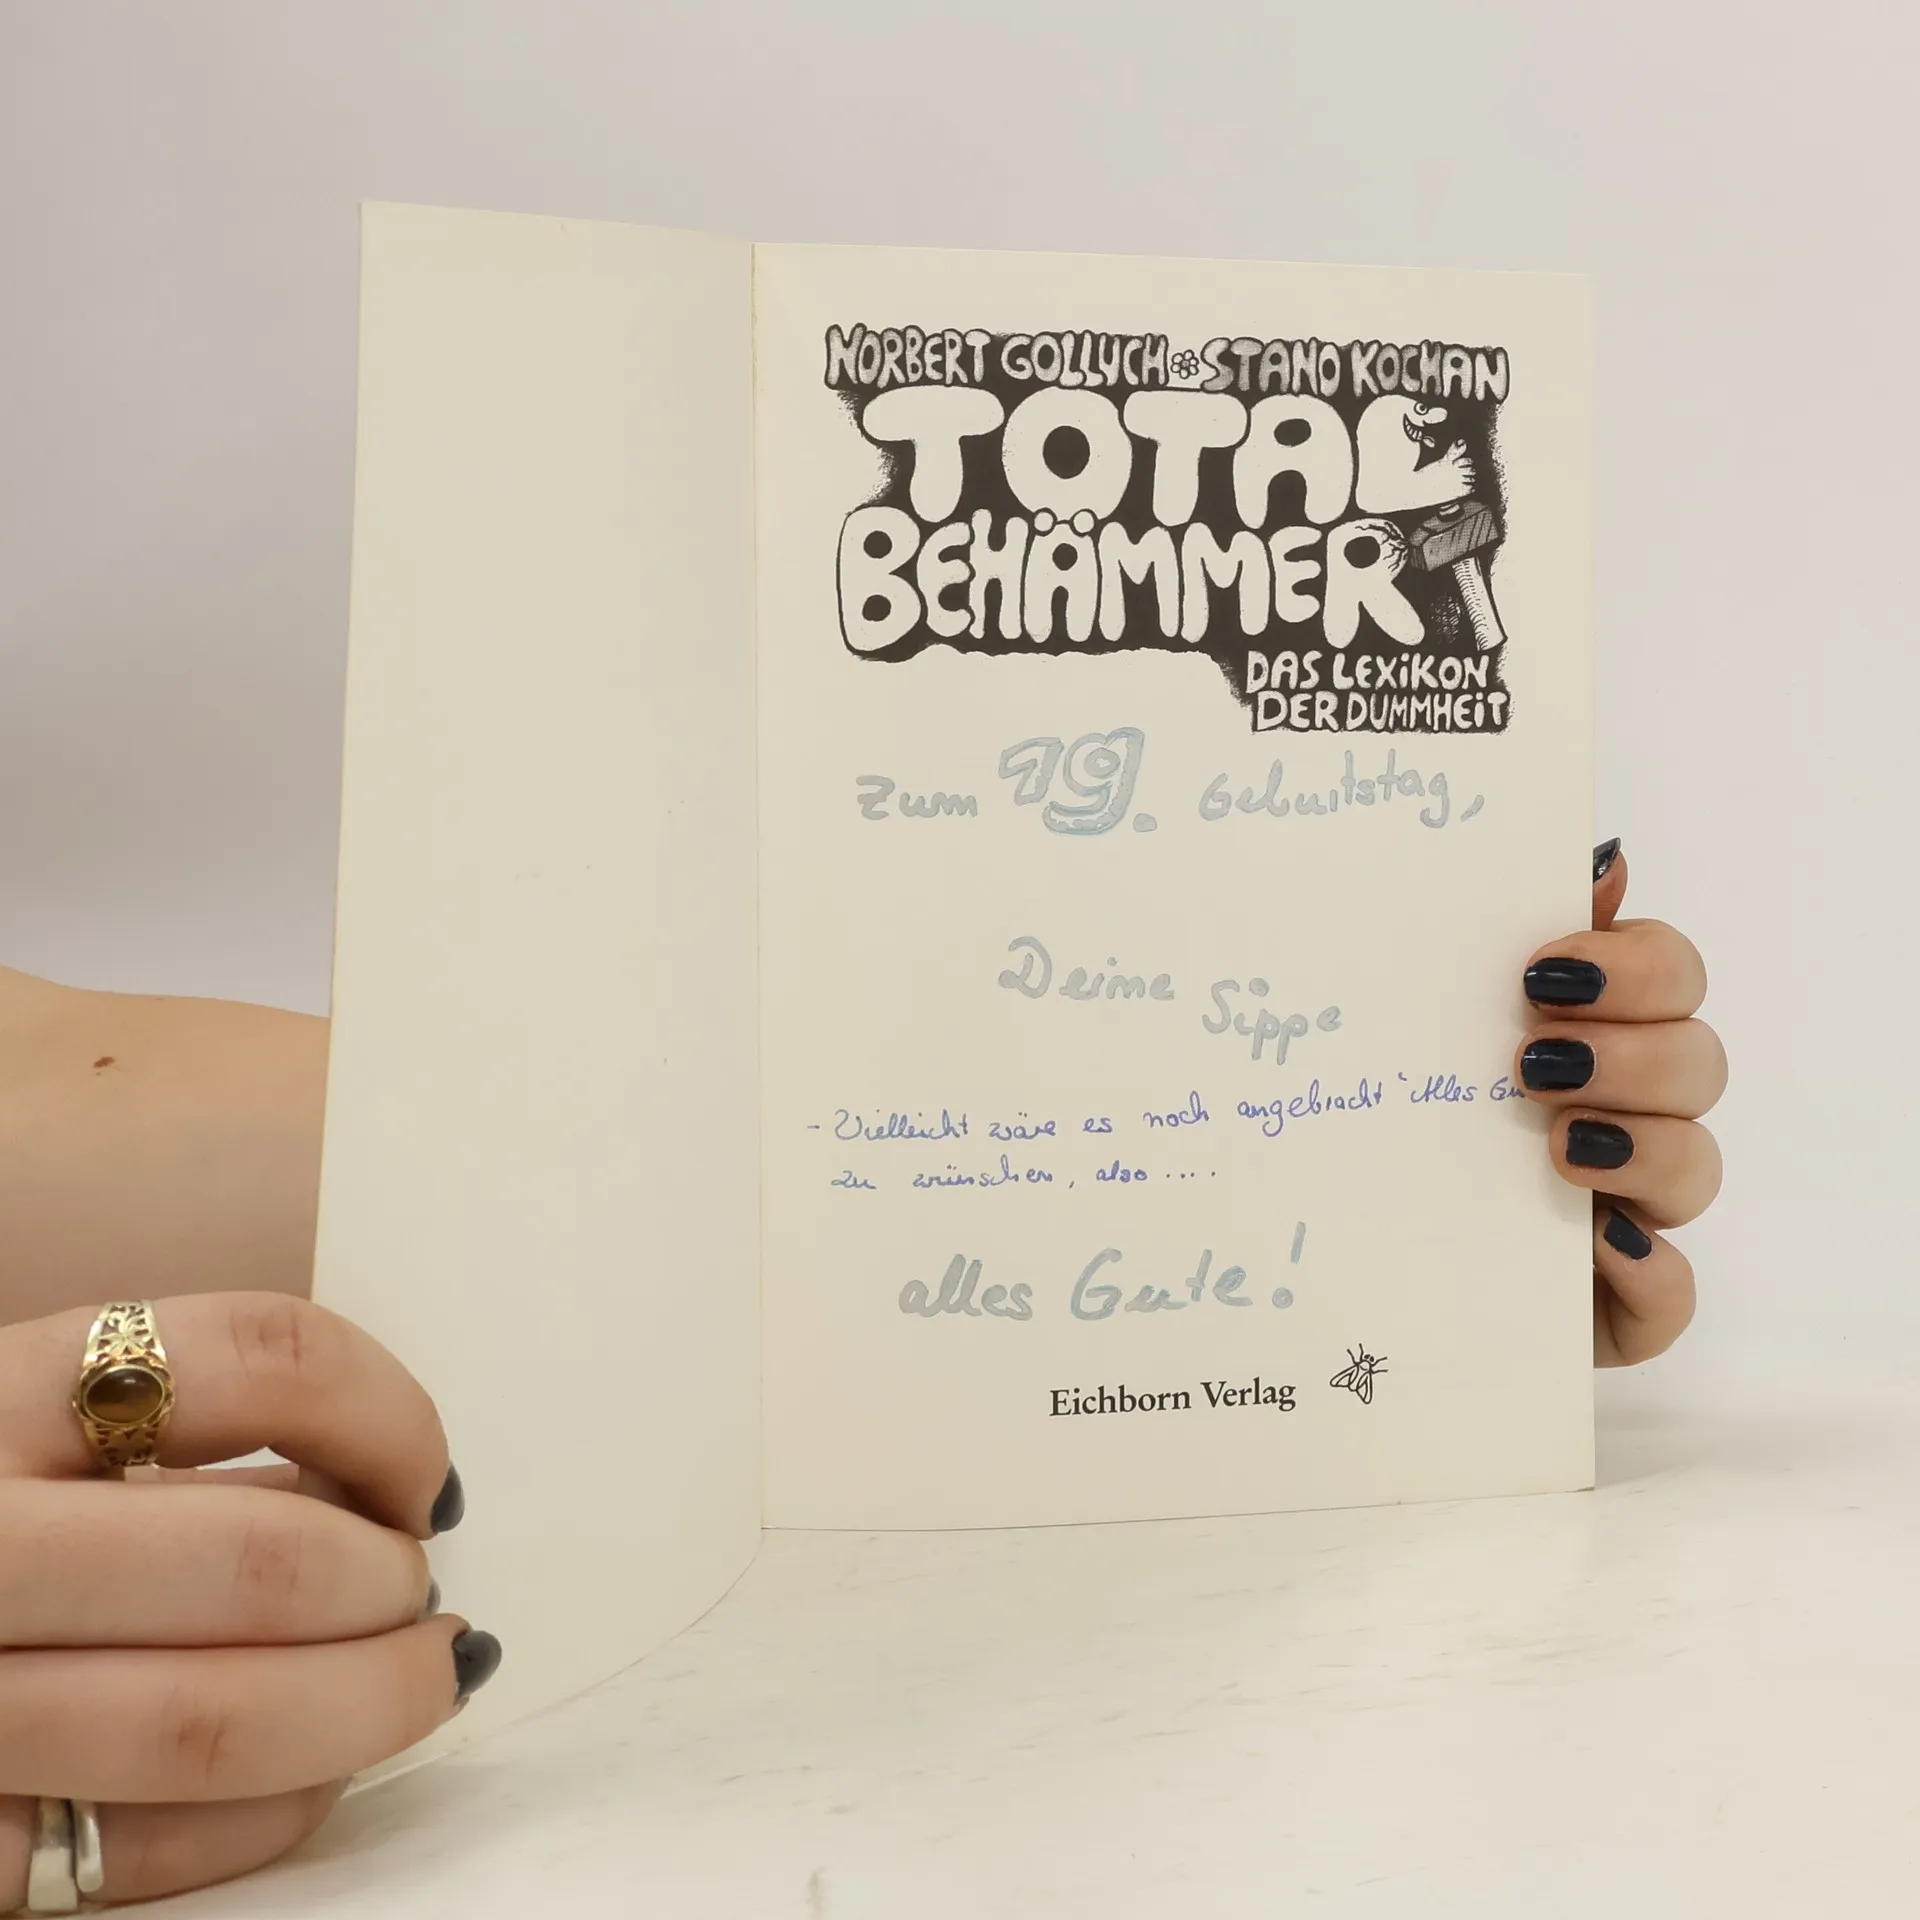 NORBERT GOLLUCH STANO KOCHAN
TOTAL
BEHÄMMERT
DAS LEXiKON
DER DUMMHEiT
Zum 19. Geburtstag,
Deine Sippe
- Vielleicht wäre es noch angebracht "Alles Gu
zu wünschen, also ....
alles Gute!
Eichborn Verlag